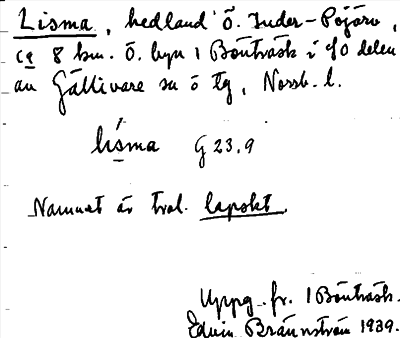 Lisma, hedland Ö. Inder-Pojärv,
ca 8 km. Ö. byn 1 Bönträsk i sö delen
av Gällivare sn ö tg, Norrb. l.
lisma G 23.9
Namnet är trol. lapskt.
Uppg. fr. 1 Bönträsk.
Edvin Brännström 1939.